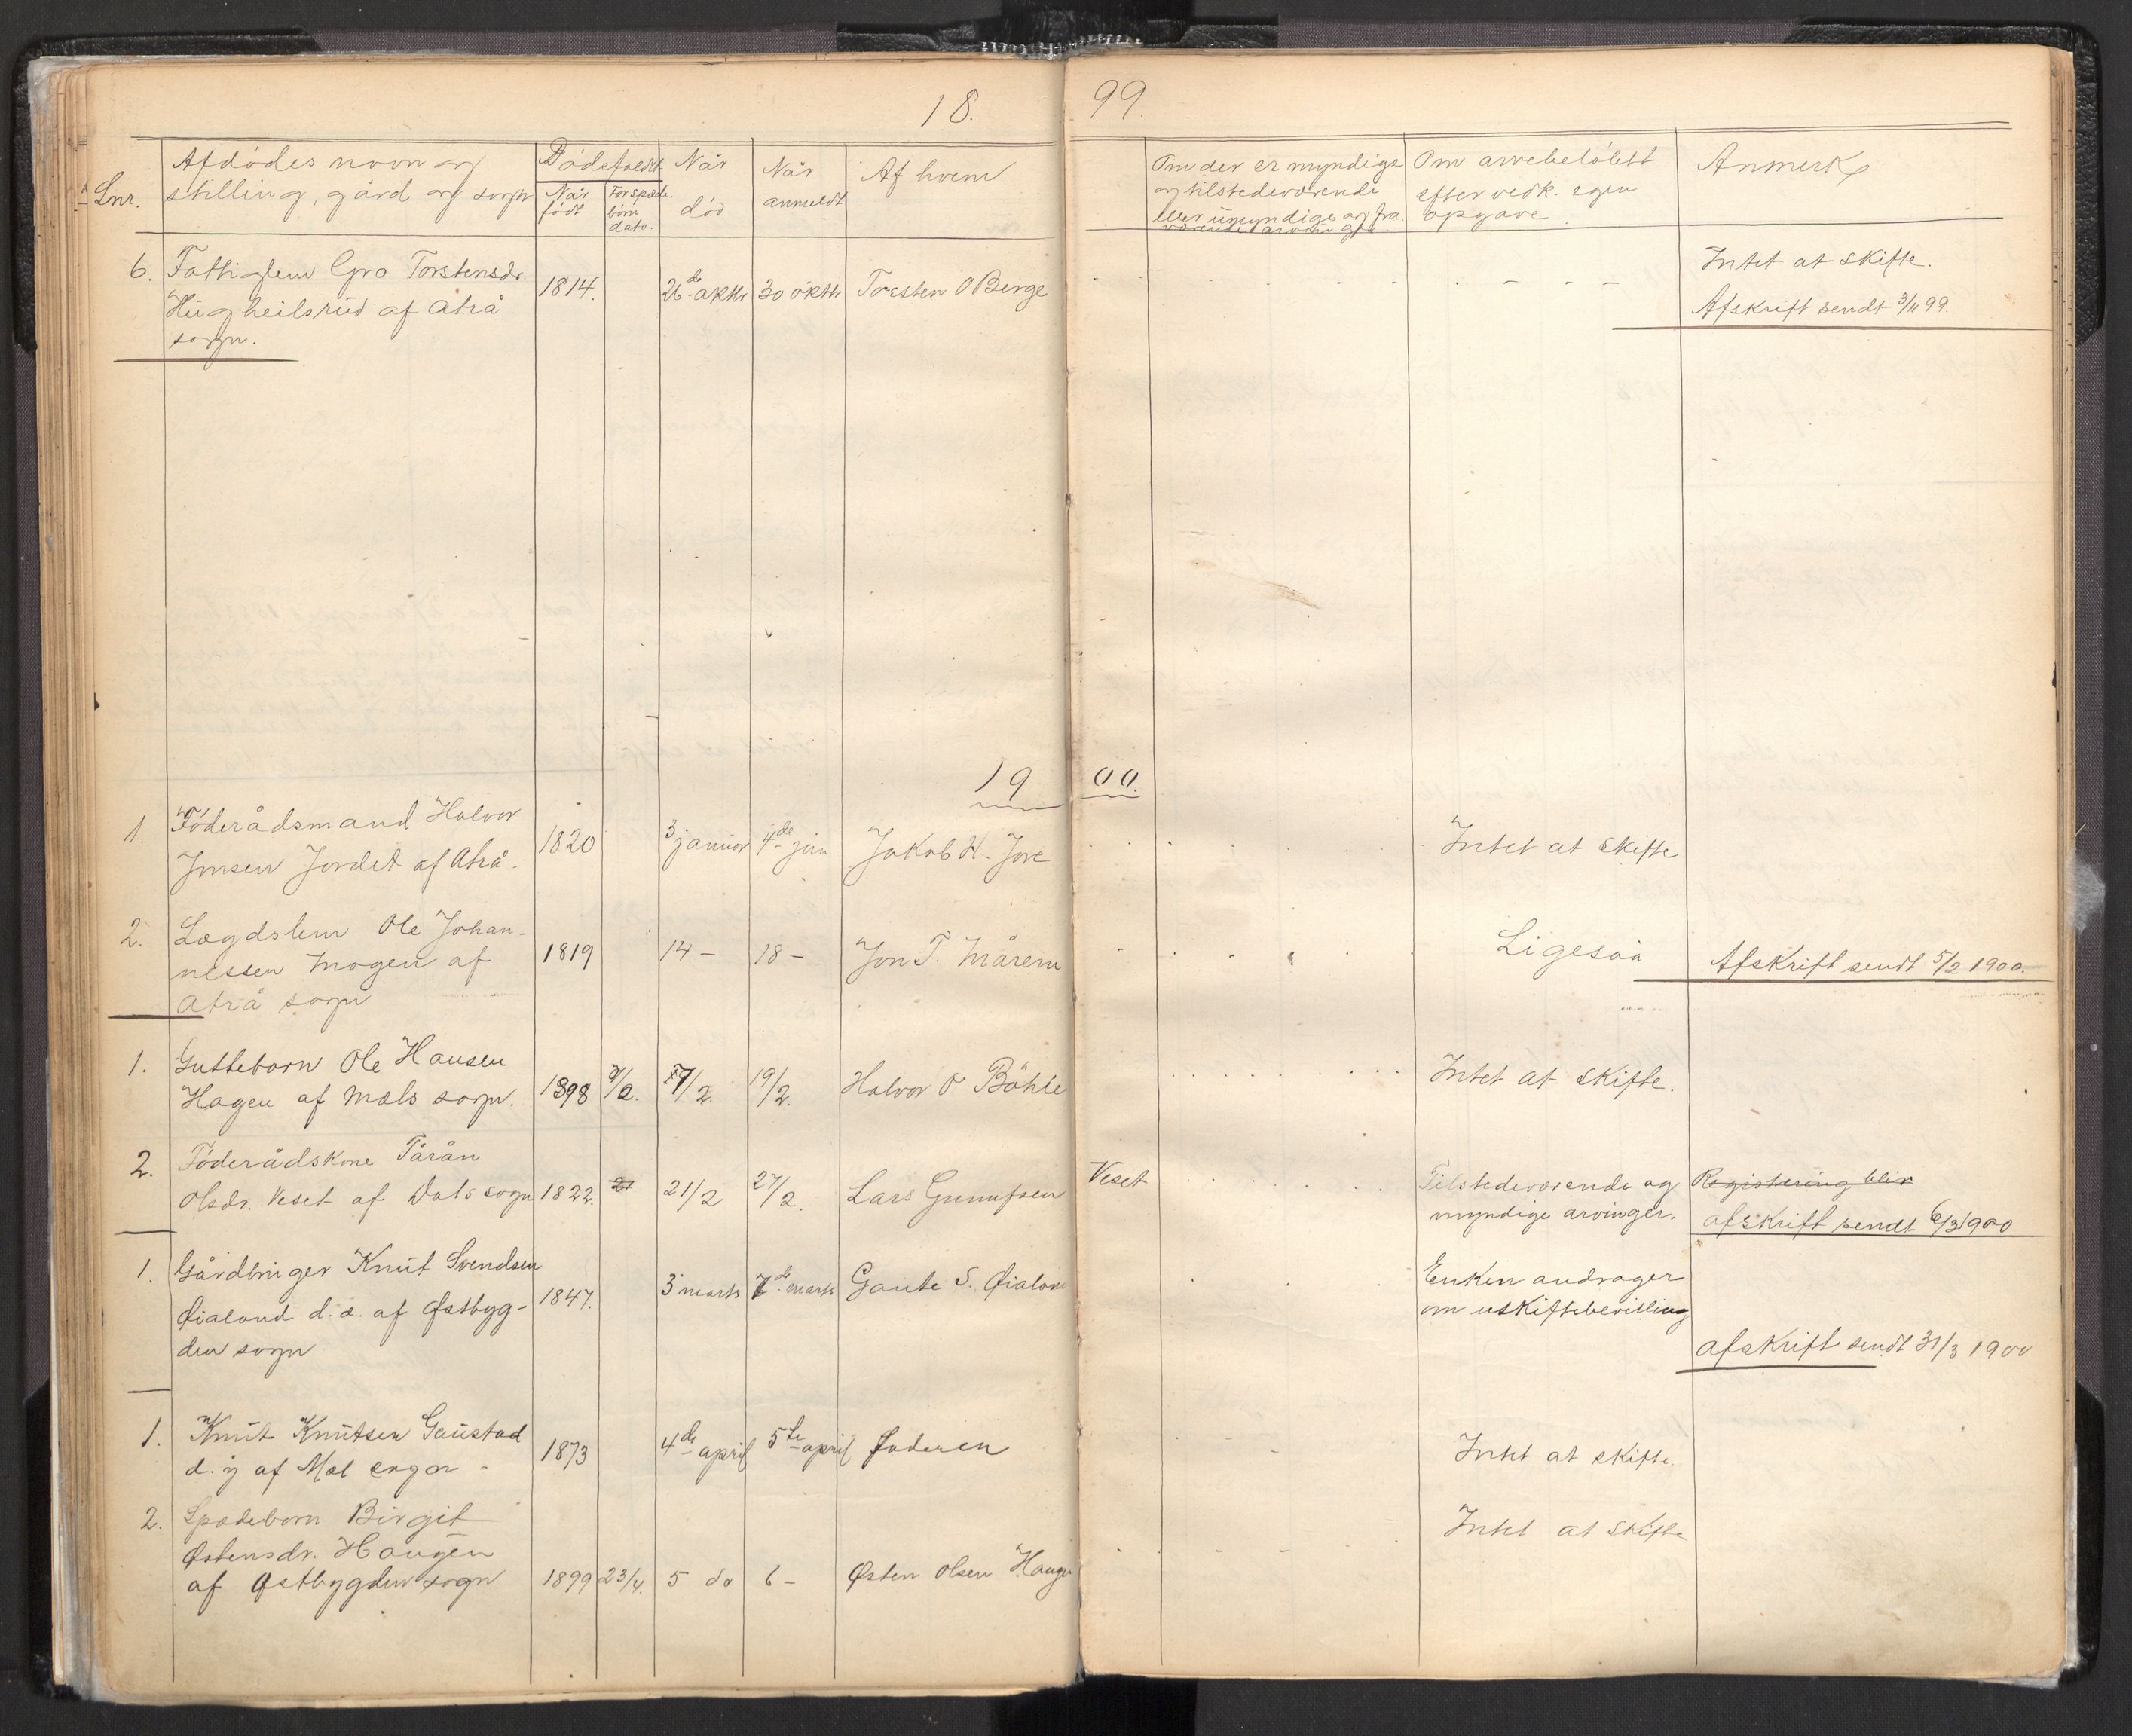 18. 99.
Lnr.
Afdödes navn og
stilling, gård og sogn
Dödsfaldet
Når
födt
For späde
börn
dato.
Når
död
Når
anmeldt
Af hvem
Om der er myndige
og tilstedeværende
eller umyndige og fra
værende arvinger
Om arvebelöbett
efter vedk. egen
opgave.
Anmerk
6. Fattiglem Gro Torstensdr.
Hugheilsrud af Atrå
sogn.
1814. 26de oktbr 30 oktbr Torsten O Berge
Intet at skifte.
Afskrift sendt 3/11 99.
19 00.
1. Föderådsmand Halvor
Jonsen Jordet af Atrå.
1820 3 januar 4de jan Jakob H. Jore
Intet at skifte
2. Lægdslem Ole Johan-
nessen Mogen af
Atrå sogn
1819 14 – 18 – Jon T. Mårem
Ligesaa
Afskrift sendt 5/2 1900.
1. Guttebarn Ole Hansen
Hagen af Mæls sogn.
1898 9/2. 17/2. 19/2. Halvor O Böhle
Intet at skifte.
2. Föderådskone Tårån
Olsdr. Veset af Dals sogn
1822. 21/2 27/2. Lars Gunufsen Veset
Tilstedeværende og
myndige arvinger.
Registrering blir
afskrift sendt 6/3 1900
1. Gårdbruger Knut Svendsen
Øialand d. æ. af Østbyg-
den sogn
1847. 3 marts 7de marts Gaute S. Øialand
Enken andrager
om uskiftebevilling
afskrift sendt 31/3 1900
1. Knut Knutsen Gaustad
d. y af Mæl sogn
1873 4de april 5te april Faderen
Intet at skifte.
2. Spædebarn Birgit
Østensdr. Haugen
af Østbygden sogn
1899 23/4. 5 do 6 – Østen Olsen Haugen
Intet at skifte